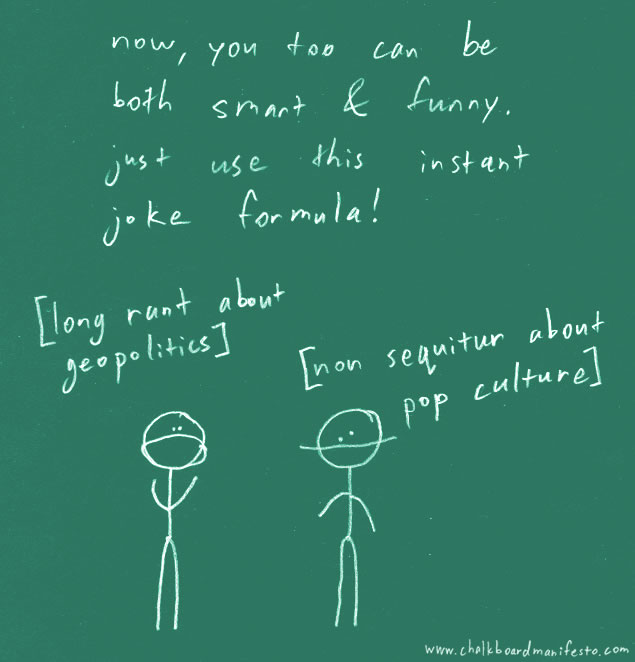 now, you too can be
both smart & funny.
just use this instant
joke formula!
[long rant about
geopolitics]
[non sequitur about
pop culture]
www.chalkboardmanifesto.com